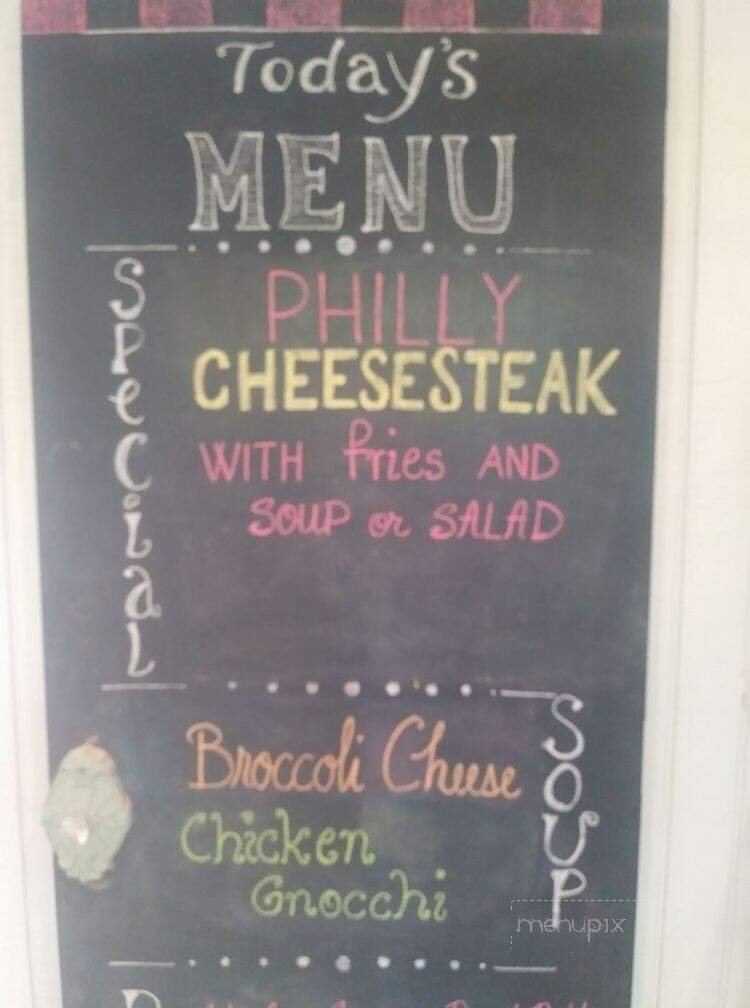 Today's
MENU
Special
PHILLY
CHEESESTEAK
WITH fries AND
SOUP or SALAD
SOUP
Broccoli Cheese
Chicken
Gnocchi
menupix